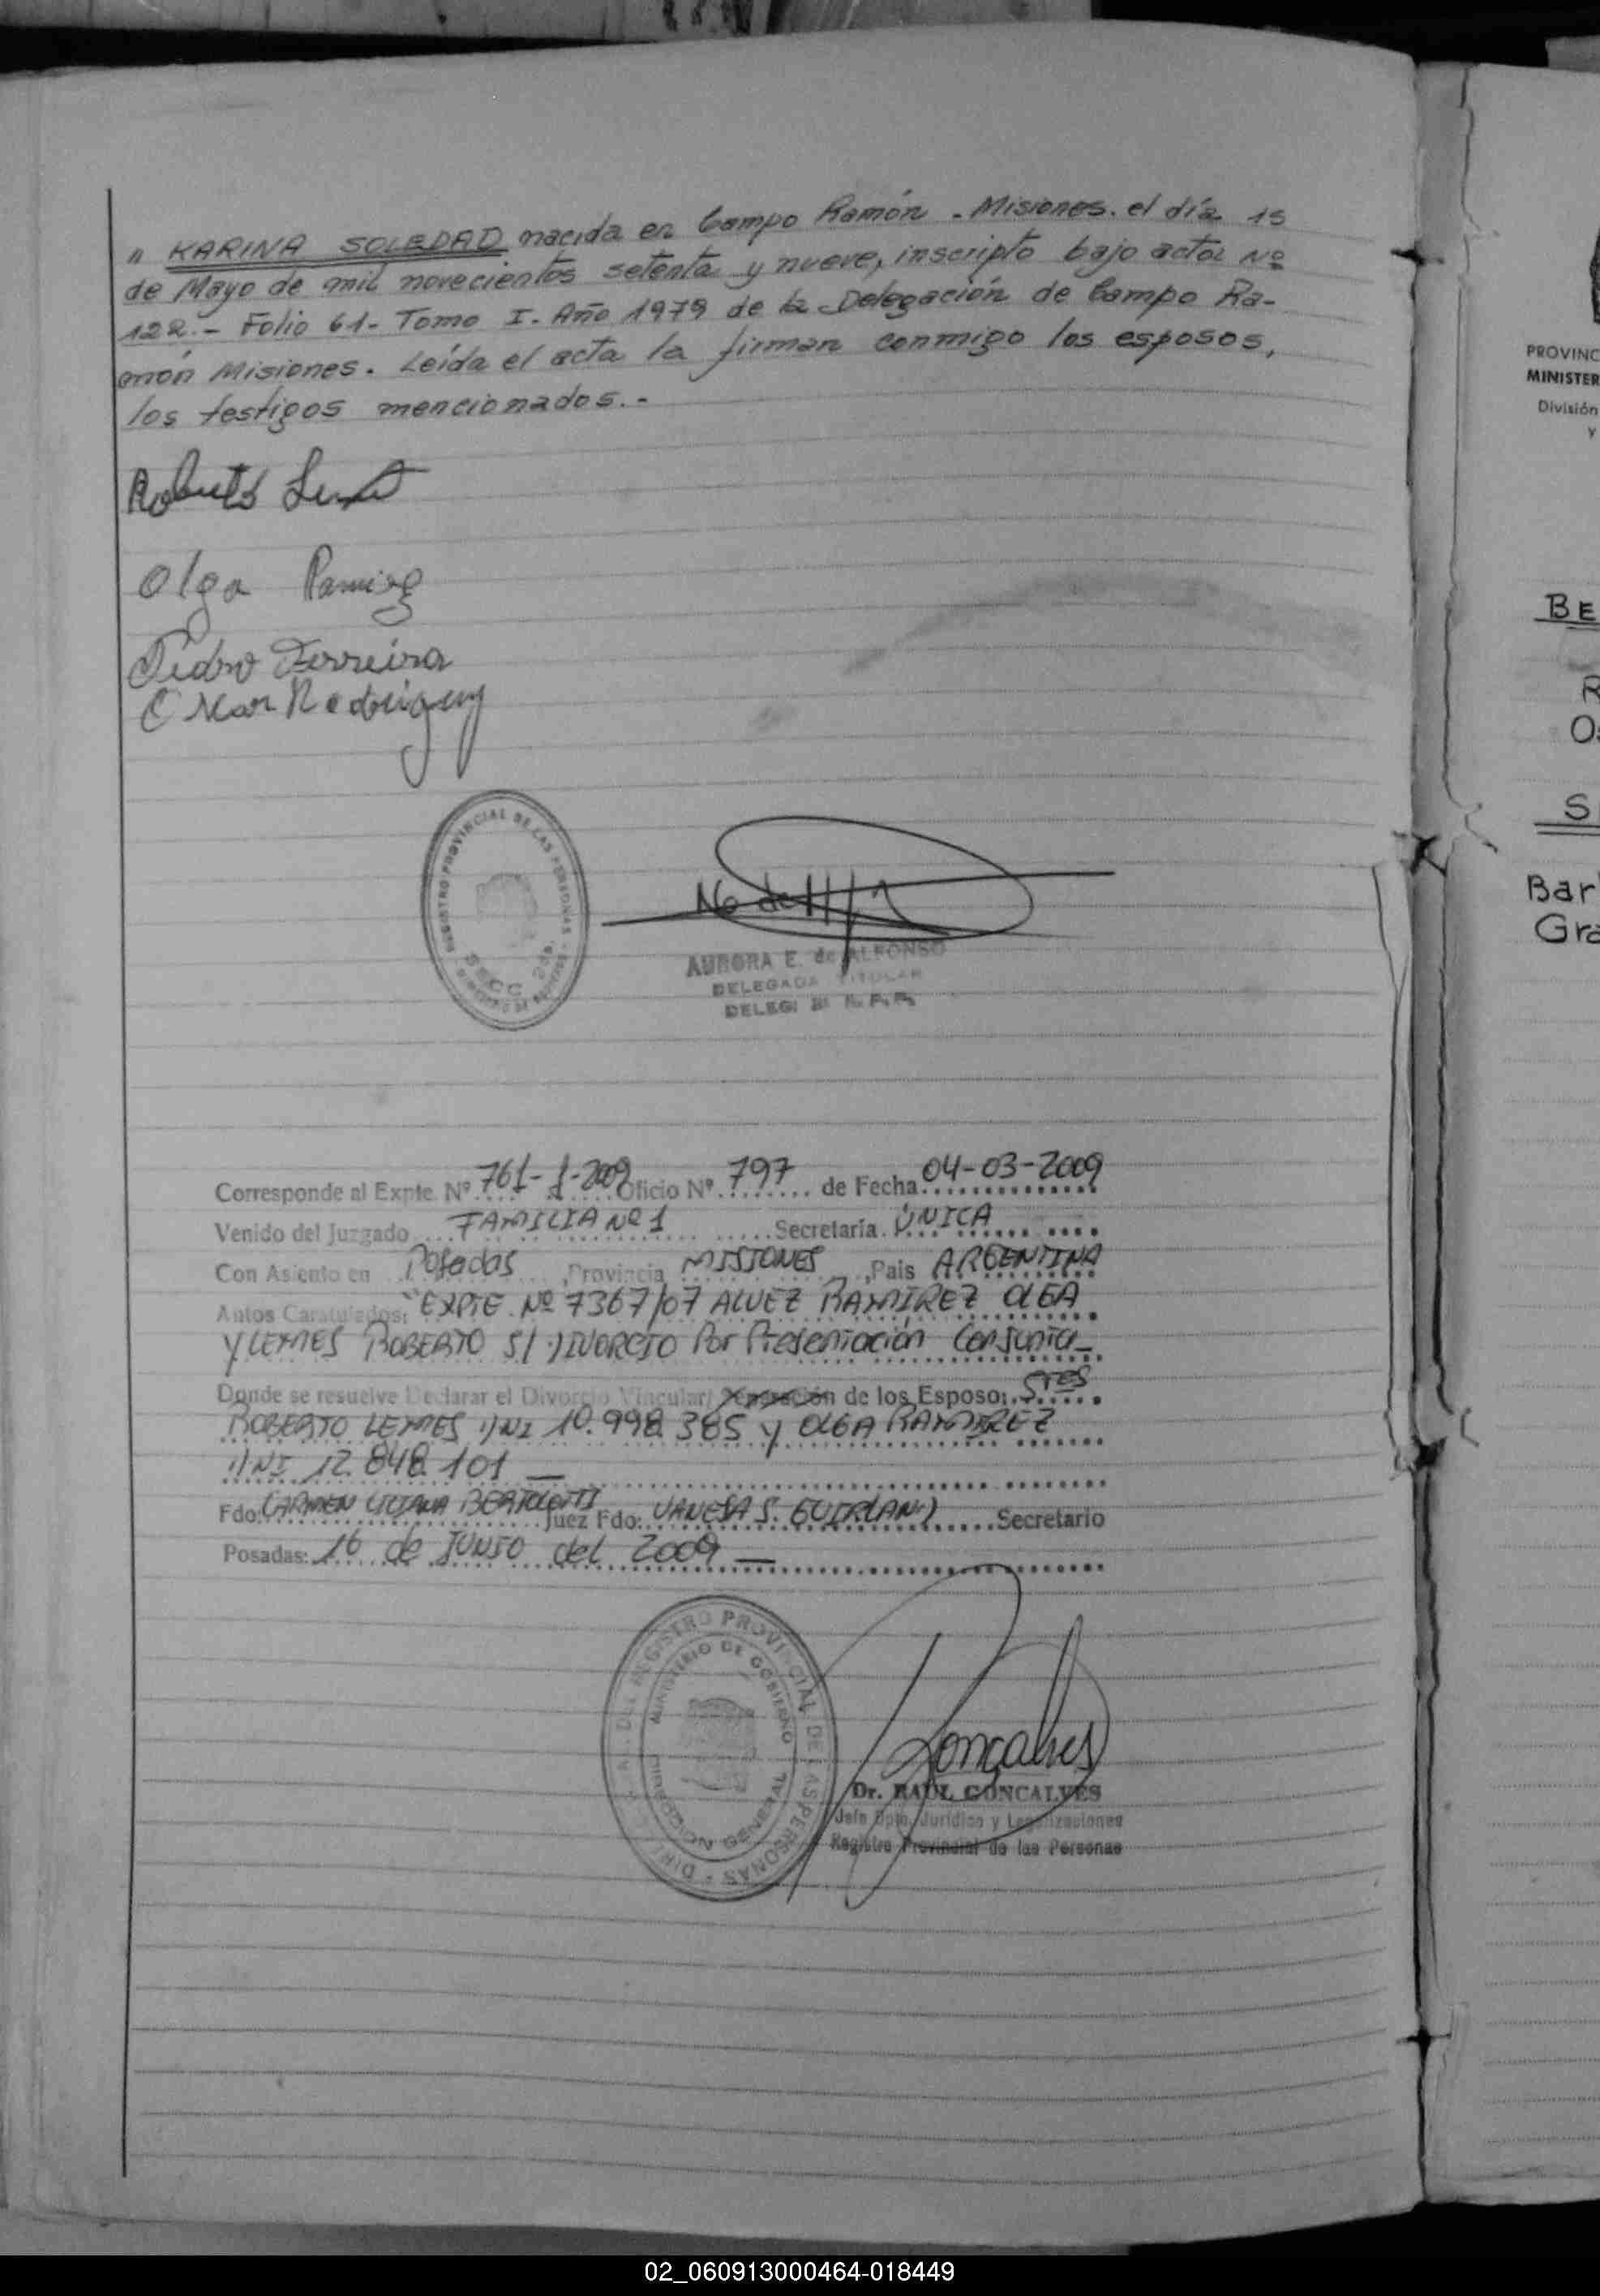 " KARINA SOLEDAD nacida en Campo Ramón - Misiones. el día 15
de Mayo de mil novecientos setenta y nueve, inscripto bajo acta Nº
122.- Folio 61- Tomo I. Año 1979 de la Delegación de Campo Ra-
món Misiones. Leída el acta la firman conmigo los esposos,
los testigos mencionados.-
Roberto
Olga Ramirez
Pedro Ferreira
Omar Rodriguez
REGISTRO PROVINCIAL DE LAS PERSONAS
SECC. 2da.
AURORA E. de ALFONSO
DELEGADA TITULAR
Corresponde al Expte. Nº 761-1-2009 Oficio Nº 797 de Fecha 04-03-2009
Venido del Juzgado FAMILIA Nº 1 Secretaría ÚNICA
Con Asiento en Posadas ,Provincia MISIONES ,Pais ARGENTINA
Autos Caratulados: "EXPTE. Nº 7367/07 ALVEZ RAMIREZ OLGA
Y LEMES ROBERTO S/ DIVORCIO Por Presentación Conjunta_
Donde se resuelve Declarar el Divorcio Vincular/ Separación de los Esposo: Sres
ROBERTO LEMES DNI 10.998.385 y OLGA RAMIREZ
DNI 12.848.101 —
Fdo: CARMEN LILIANA BERTOLOTTI Juez Fdo: VANESA S. GUIRLAND Secretario
Posadas: 16 de JUNIO del 2009 —
DIRECCION GENERAL DEL REGISTRO PROVINCIAL DE LAS PERSONAS
MINISTERIO DE GOBIERNO
DIRECCION GENERAL
Goncalves
Dr. RAUL GONCALVES
Jefe Dpto. Jurídico y Legalizaciones
Registro Provincial de las Personas
PROVINC
MINISTER
División
y
BE
R
Os
S
Bar
Gra
02_060913000464-018449